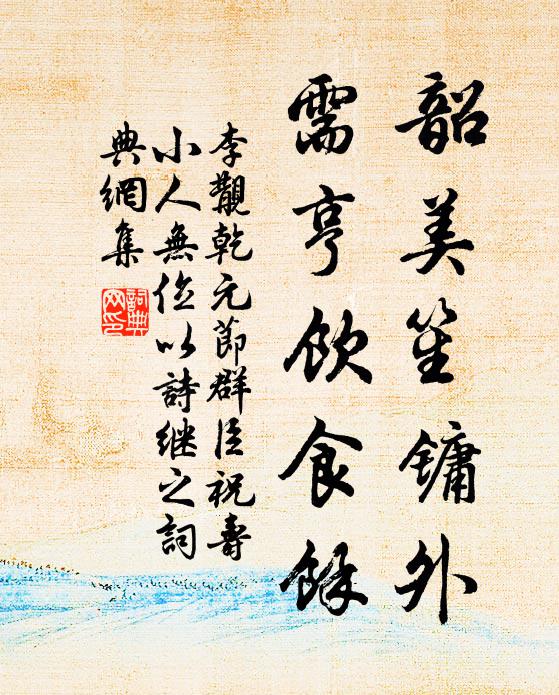 韶美笙鏞外
需亨飲食餘
李覯乾元節群臣祝壽
小人無位以詩继之詞
典網集
詞典
网印